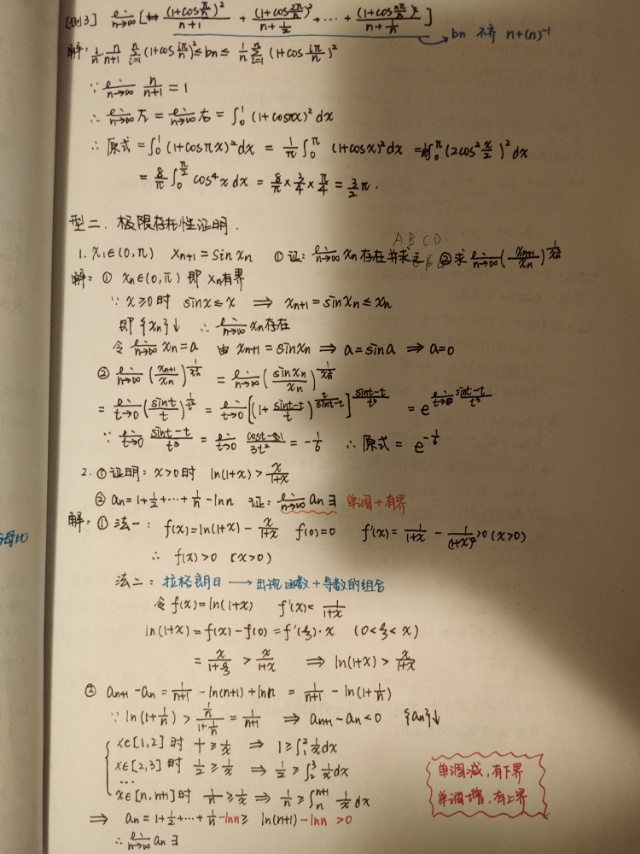 [例3] lim_{n→∞} [ (1+cos π/n)²/(n+1) + (1+cos 2π/n)²/(n+1/2) + … + (1+cos nπ/n)²/(n+1/n) ]
→ bn 不齐 n+(n)⁻¹
解: 1/n · n/(n+1) Σ_{i=1}^{n} (1+cos iπ/n)² ≤ bn ≤ 1/n Σ_{i=1}^{n} (1+cos iπ/n)²
∵ lim_{n→∞} n/(n+1) = 1
∴ lim_{n→∞} 左 = lim_{n→∞} 右 = ∫₀¹ (1+cosπx)² dx
∴ 原式 = ∫₀¹ (1+cosπx)² dx = 1/π ∫₀^π (1+cosx)² dx = 1/π ∫₀^π (2cos² x/2)² dx
= 8/π ∫₀^{π/2} cos⁴x dx = 8/π × 3/4 × π/4 = 3/2 π.
型二. 极限存在性证明.
A B C D
1. x₁∈(0,π) x_{n+1} = sin x_n ① 证: lim_{n→∞} x_n 存在并求之 ② 求 lim_{n→∞} (x_{n+1}/x_n)^{1/x_n²}
解: ① x_n∈(0,π) 即 x_n有界
∵ x≥0时 sinx≤x ⇒ x_{n+1} = sin x_n ≤ x_n
即 {x_n}↓ ∴ lim_{n→∞} x_n 存在
令 lim_{n→∞} x_n = a 由 x_{n+1} = sin x_n ⇒ a = sin a ⇒ a=0
② lim_{n→∞} (x_{n+1}/x_n)^{1/x_n²} = lim_{n→∞} (sin x_n/x_n)^{1/x_n²}
= lim_{t→0} (sint/t)^{1/t²} = lim_{t→0} [(1+ (sint-t)/t)^{t/(sint-t)}]^{(sint-t)/t³} = e^{lim_{t→0} (sint-t)/t³}
∵ lim_{t→0} (sint-t)/t³ = lim_{t→0} (cost-1)/3t² = -1/6 ∴ 原式 = e^{-1/6}
2. ① 证明: x>0时 ln(1+x) > x/(1+x)
② an = 1+1/2+…+1/n - lnn 证: lim_{n→∞} an ∃ 单调+有界
解: ① 法一: f(x) = ln(1+x) - x/(1+x) f(0)=0 f'(x) = 1/(1+x) - 1/(1+x)² >0 (x>0)
∴ f(x)>0 (x>0)
法二: 拉格朗日 → 出现函数+导数的组合
令 f(x) = ln(1+x) f'(x) = 1/(1+x)
ln(1+x) = f(x) - f(0) = f'(ξ)·x (0<ξ<x)
= x/(1+ξ) > x/(1+x) ⇒ ln(1+x) > x/(1+x)
② a_{n+1} - a_n = 1/(n+1) - ln(n+1) + lnn = 1/(n+1) - ln(1+1/n)
∵ ln(1+1/n) > (1/n)/(1+1/n) = 1/(n+1) ⇒ a_{n+1} - a_n < 0 {an}↓
x∈[1,2]时 1≥1/x ⇒ 1≥∫₁² 1/x dx
x∈[2,3]时 1/2≥1/x ⇒ 1/2≥∫₂³ 1/x dx
…
x∈[n,n+1]时 1/n≥1/x ⇒ 1/n≥∫_n^{n+1} 1/x dx
⇒ an = 1+1/2+…+1/n -lnn ≥ ln(n+1) -lnn >0
∴ lim_{n→∞} an ∃
单调减,有下界
单调增,有上界